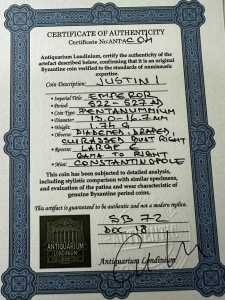 CERTIFICATE OF AUTHENTICITY
Certificate No:
Antiquarium Londinium, certify the authenticity of the
artefact described below, confirming that it is an original
Byzantine coin verified to the standards of numismatic
expertise.
Coin Description: JUSTIN I
• Imperial Title: EMPEROR
• Period: 522-527 AD
• Coin Type: PENTANUMMIUM
• Diameter: 15.0-16.7mm
• Weight:
• Obverse: DIADEMED, DRAPED,
CUIRASSED BUST RIGHT
• Reverse: LARGE
TO RIGHT
• Mint: CONSTANTINOPLE
This coin has been subjected to detailed analysis,
including stylistic comparison with similar specimens,
and evaluation of the patina and wear characteristic of
genuine Byzantine period coins.
This artifact is guaranteed to be authentic and not a modern replica.
SB 72
DOC 18
ANTIQUARIUM
LONDINIUM
Antiquarium Londinium